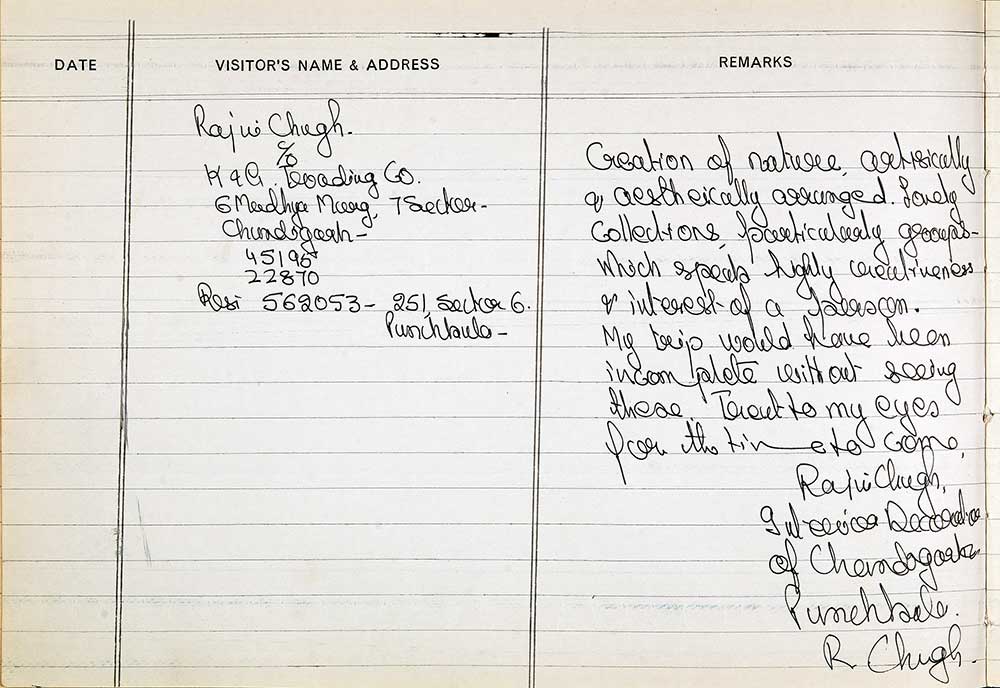 DATE
VISITOR'S NAME & ADDRESS
REMARKS
Rajni Chugh.
C/o
K & G. Trading Co.
6 Madhya Marg, 7 Sector-
Chandigarh-
45195
22870
Resi 562053- 251, Sector 6.
Punchkula-
Creation of nature, artisically
& aesthetically arranged. Lovely
Collections, particularly groups-
which speaks highly creativeness
& interest of a person.
My trip would have been
incomplete without seeing
these. Treat to my eyes
for the time to come,
Rajni Chugh,
Interior Decorator
of Chandigarh
Punchkula.
R. Chugh.